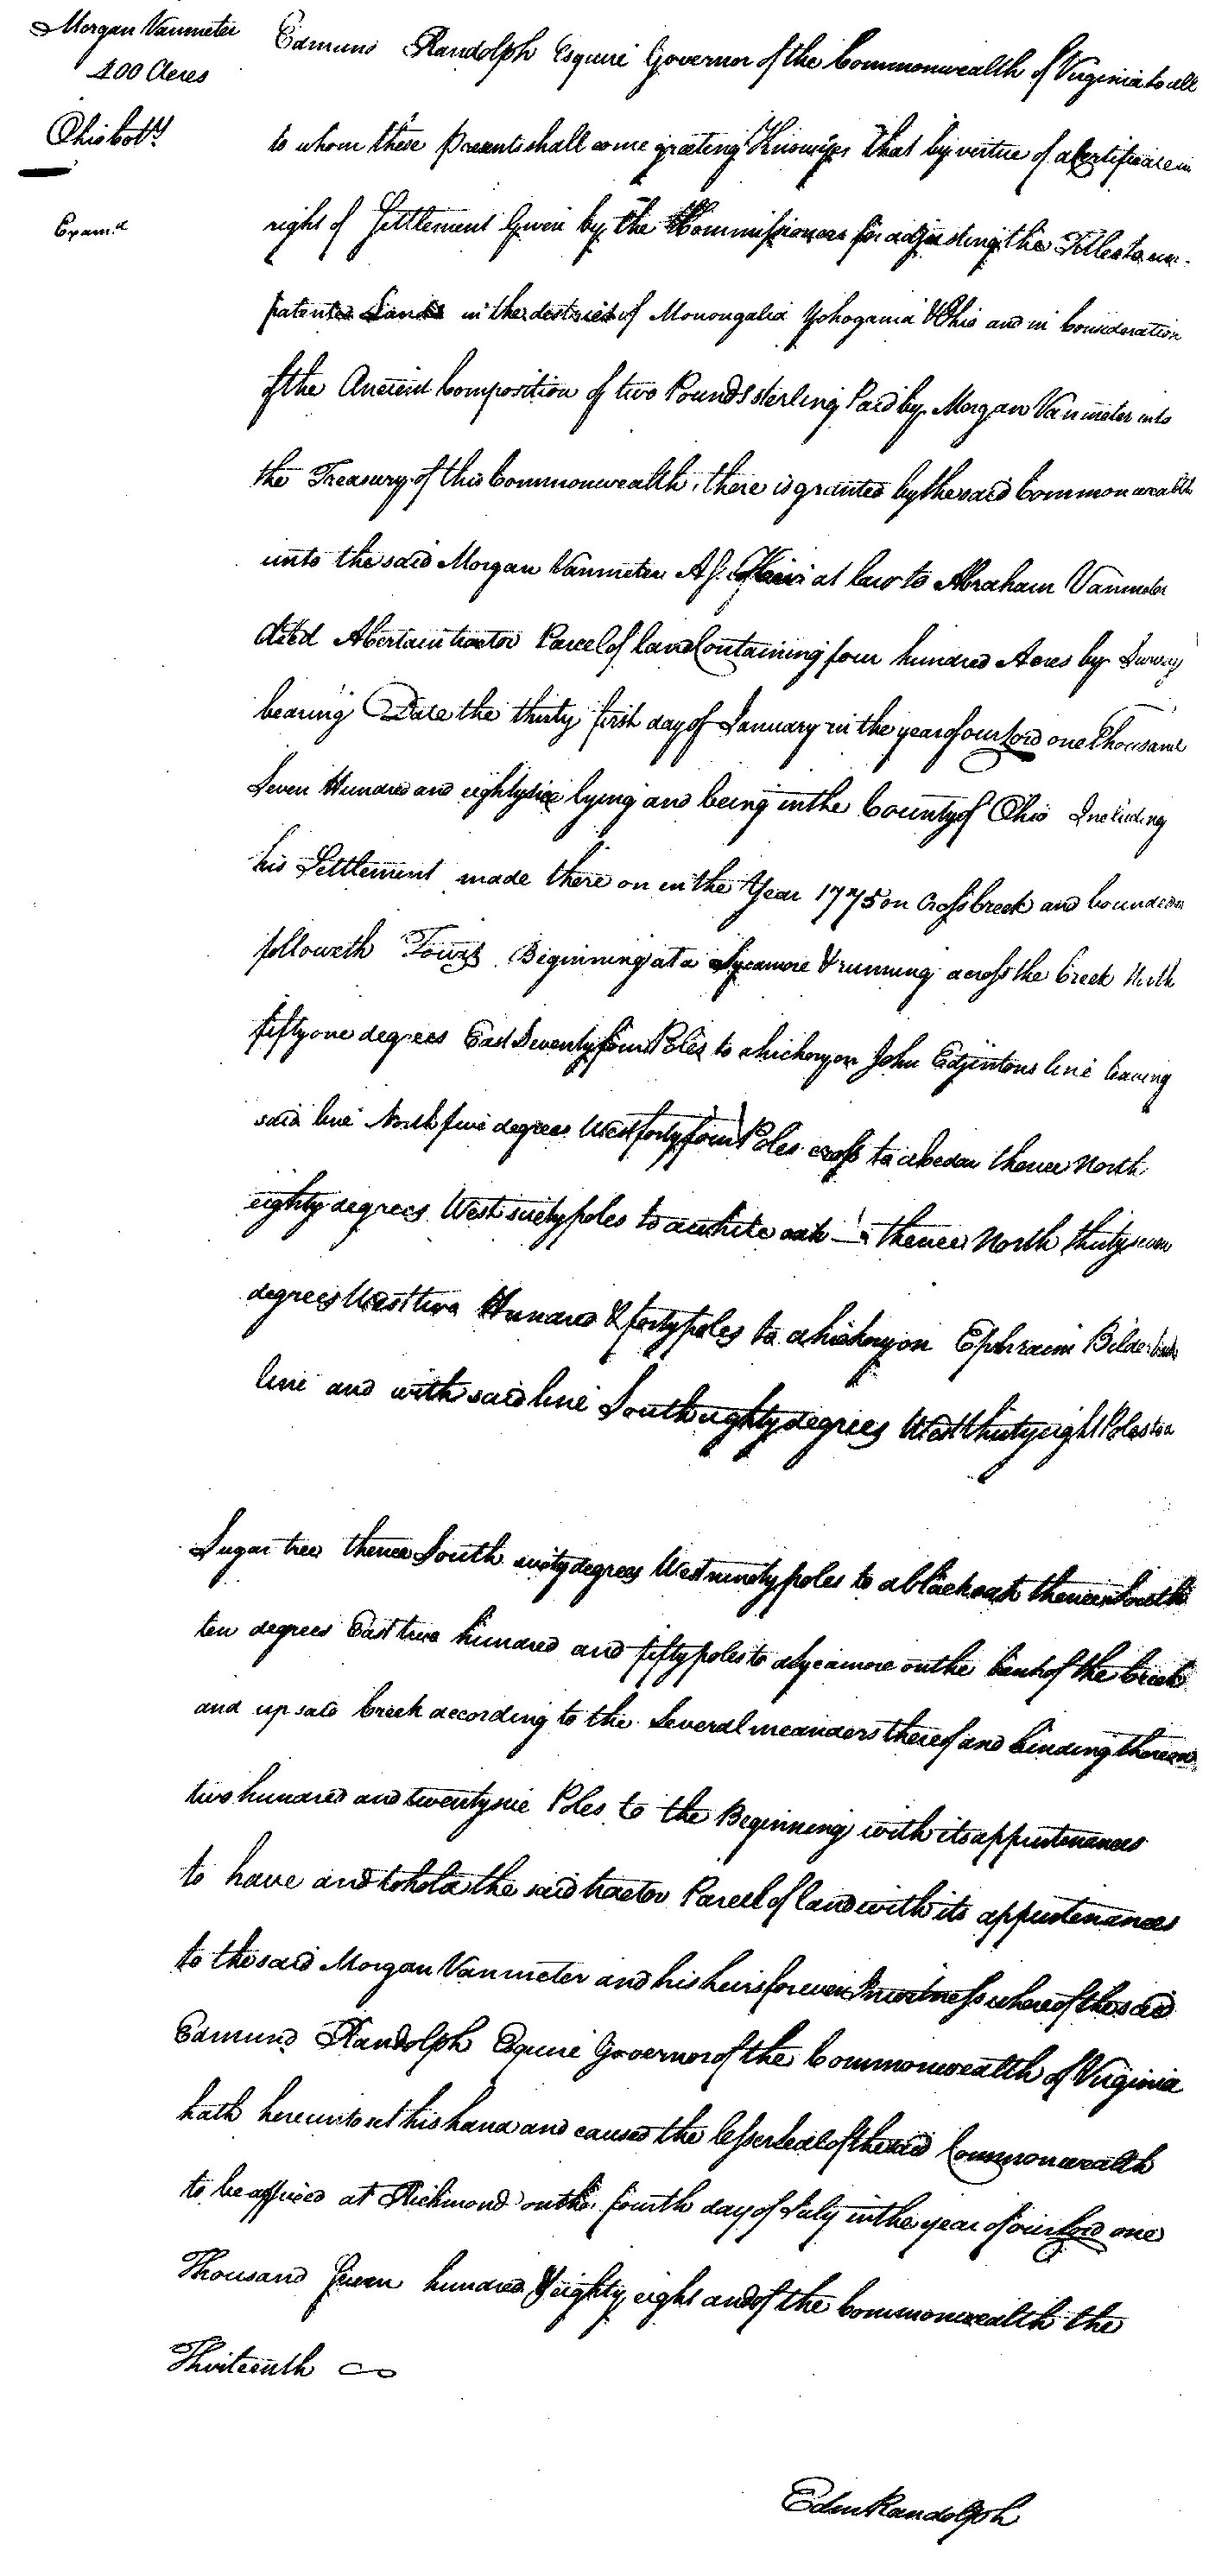 Morgan Vanmeter
400 Acres
Ohio Coty
Examd
Edmund Randolph Esquire Governor of the Commonwealth of Virginia to all
to whom these presents shall come greeting Know ye that by virtue of a Certificate in
right of Settlement Given by the Commissioners for adjusting the Titles to un-
patented Lands in the district of Monongalia Yohogania & Ohio and in Consideration
of the Ancient Composition of two Pounds sterling Paid by Morgan Vanmeter into
the Treasury of this Commonwealth, there is granted by the said Commonwealth
unto the said Morgan Vanmeter As Heir at law to Abraham Vanmeter
decd A Certain tract or Parcel of land Containing four hundred Acres by Survey
bearing Date the thirty first day of January in the year of our Lord one Thousand
Seven Hundred and eighty six lying and being in the County of Ohio Including
his Settlement made there on in the Year 1775 on Cross Creek and bounded as
followeth Towit Beginning at a Sycamore & running across the Creek North
fifty one degrees East Seventy four Poles to a hickory on John Edjintons line leaving
said line North five degrees West forty four Poles cross to a beden thence North
eighty degrees West sixty poles to a white oak thence North thirty seven
degrees West two Hundred & forty poles to a hickory on Ephraim Bilderbacks
line and with said line South eighty degrees West thirty eight Poles to a
Sugar tree thence South sixty degrees West ninety poles to a black oak thence South
ten degrees East two hundred and fifty poles to a Sycamore on the bank of the Creek
and up said Creek according to the Several meanders thereof and binding thereon
two hundred and twenty six Poles to the Beginning with its appurtenances
to have and to hold the said tract or Parcel of land with its appurtenances
to the said Morgan Vanmeter and his heirs forever In witness whereof the said
Edmund Randolph Esquire Governor of the Commonwealth of Virginia
hath hereunto set his hand and caused the lesser Seal of the said Commonwealth
to be affixed at Richmond on the fourth day of July in the year of our Lord one
Thousand Seven hundred & eighty eight and of the Commonwealth the
Thirteenth
Edm Randolph